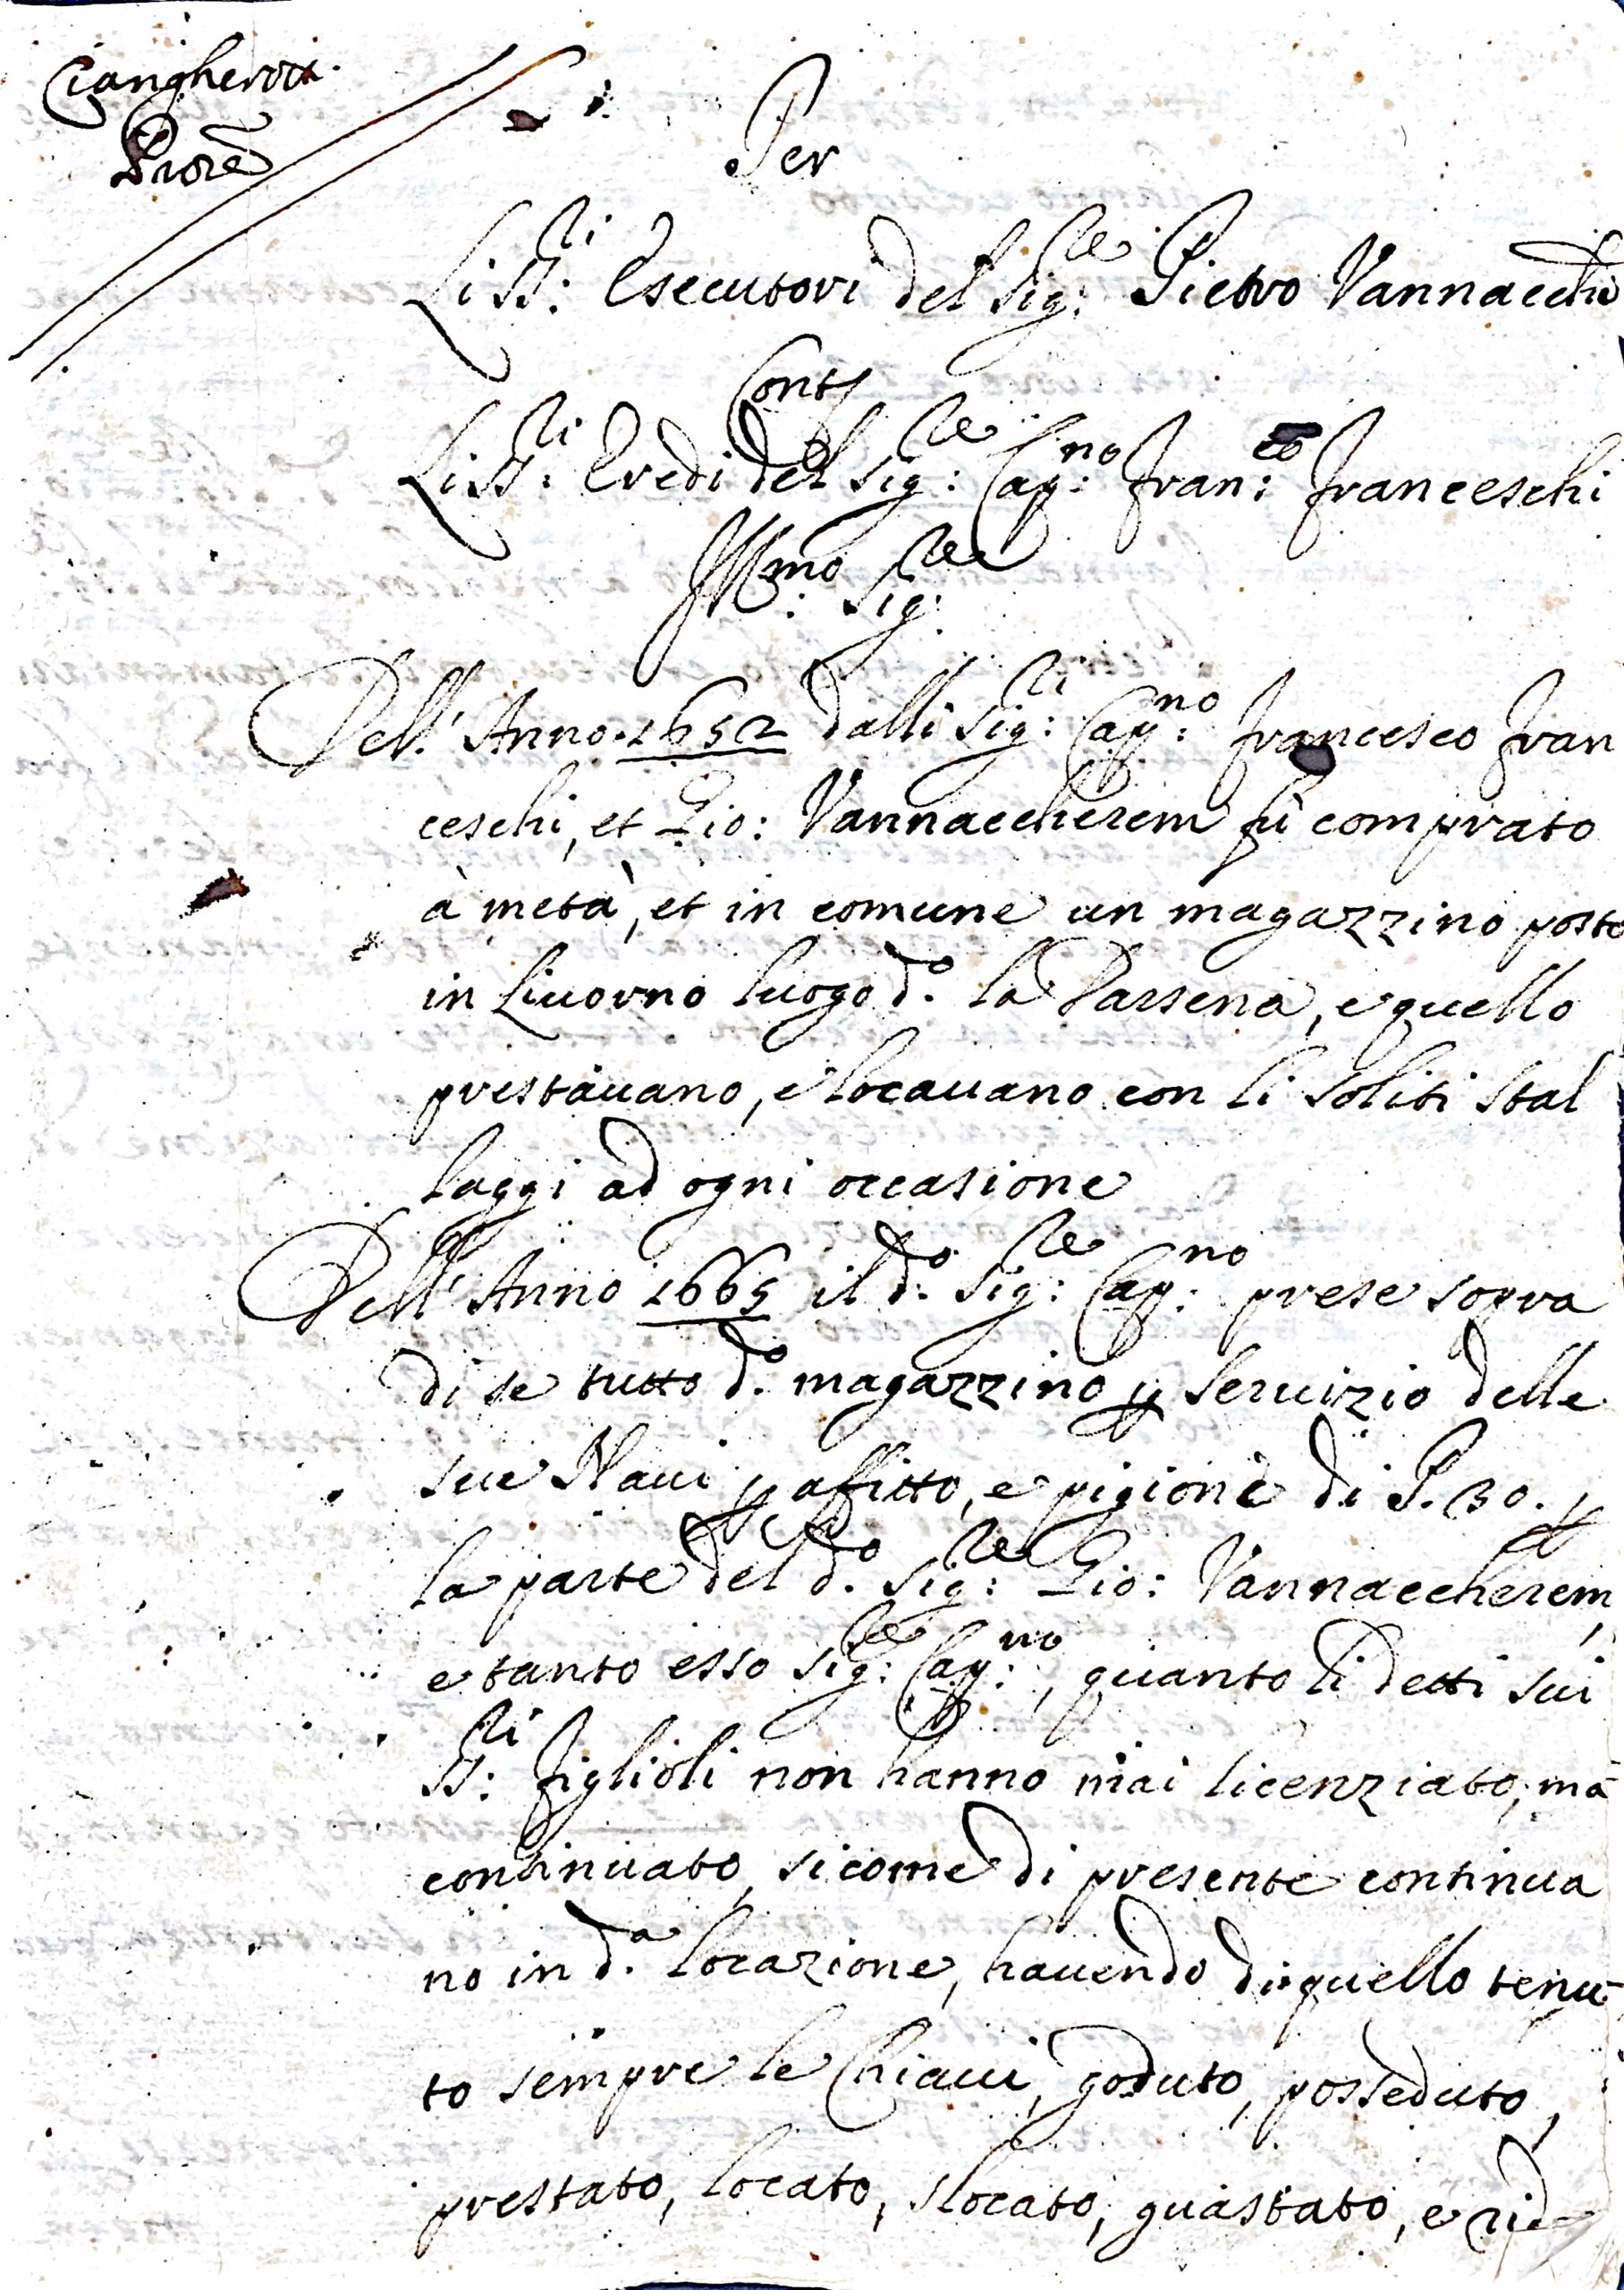 Ciangherotti
Prore
Per
Li SS:ri Esecutori del Sig:re Pietro Vannacche
Cont
Li SS:ri Eredi del Sig:re Cap:no Fran:co Franceschi
Ill:mo Sig:re
Dell' Anno 1652 dalli Sig:ri Cap:no Francesco Fran
ceschi, et Gio: Vannaccherem fù comprato
à metà, et in comune un magazzino posto
in Liuorno luogo d.o la Darsena, e quello
prestauano, e locauano con li soliti stal
laggi ad ogni occasione
Dell' Anno 1665 il d.o Sig:re Cap:no prese sopra
di se tutto d.o magazzino p seruizio delle
sue Naui p affitto, e pigione di P. 30. p
la parte del d.o Sig:re Gio: Vannaccherem,
e tanto esso Sig:re Cap:no, quanto li detti sui
SS:ri figlioli non hanno mai licenziato, mà
continuato, sicome di presente continua
no in d.a locazione, hauendo di quello tenu
to sempre le Chiaui, goduto, posseduto,
prestato, locato, slocato, guastato, e rid